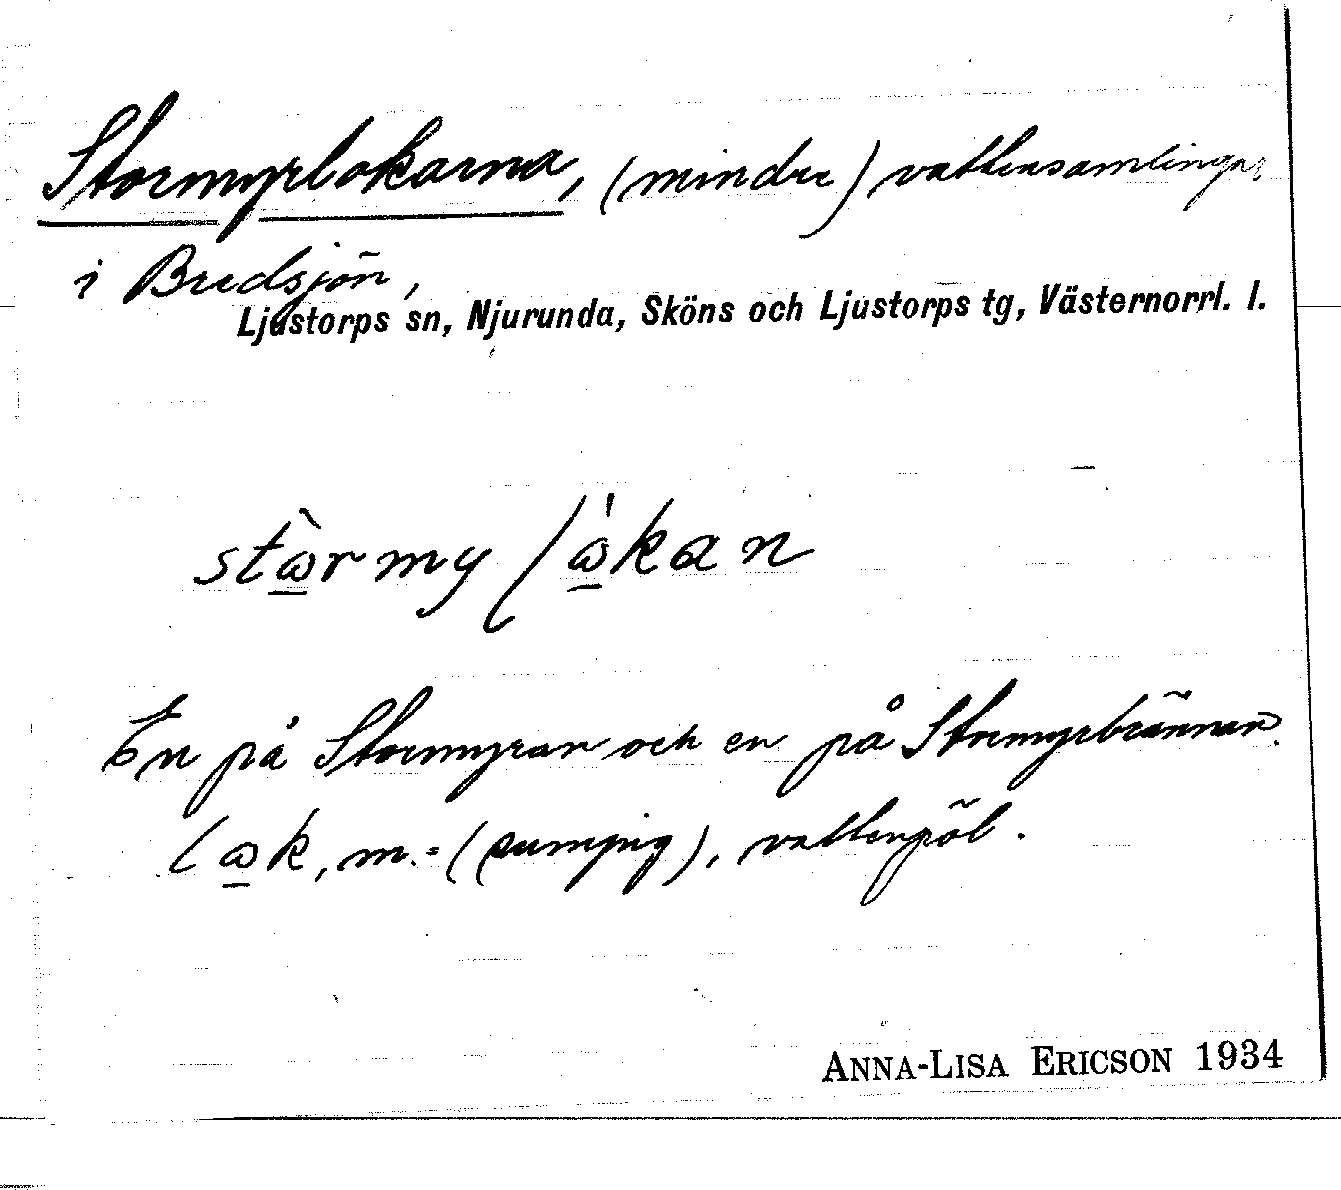 Stormyrlokarna, (mindre) vattensamlingar
i Bredsjön,
Ljustorps sn, Njurunda, Sköns och Ljustorps tg, Västernorrl. l.
stὼ̲rmylω̲̍kan
En på Stormyran och en på Stormyrbrännan.
lω̲k, m. = (sumpig), vattenpöl.
ANNA-LISA ERICSON 1934